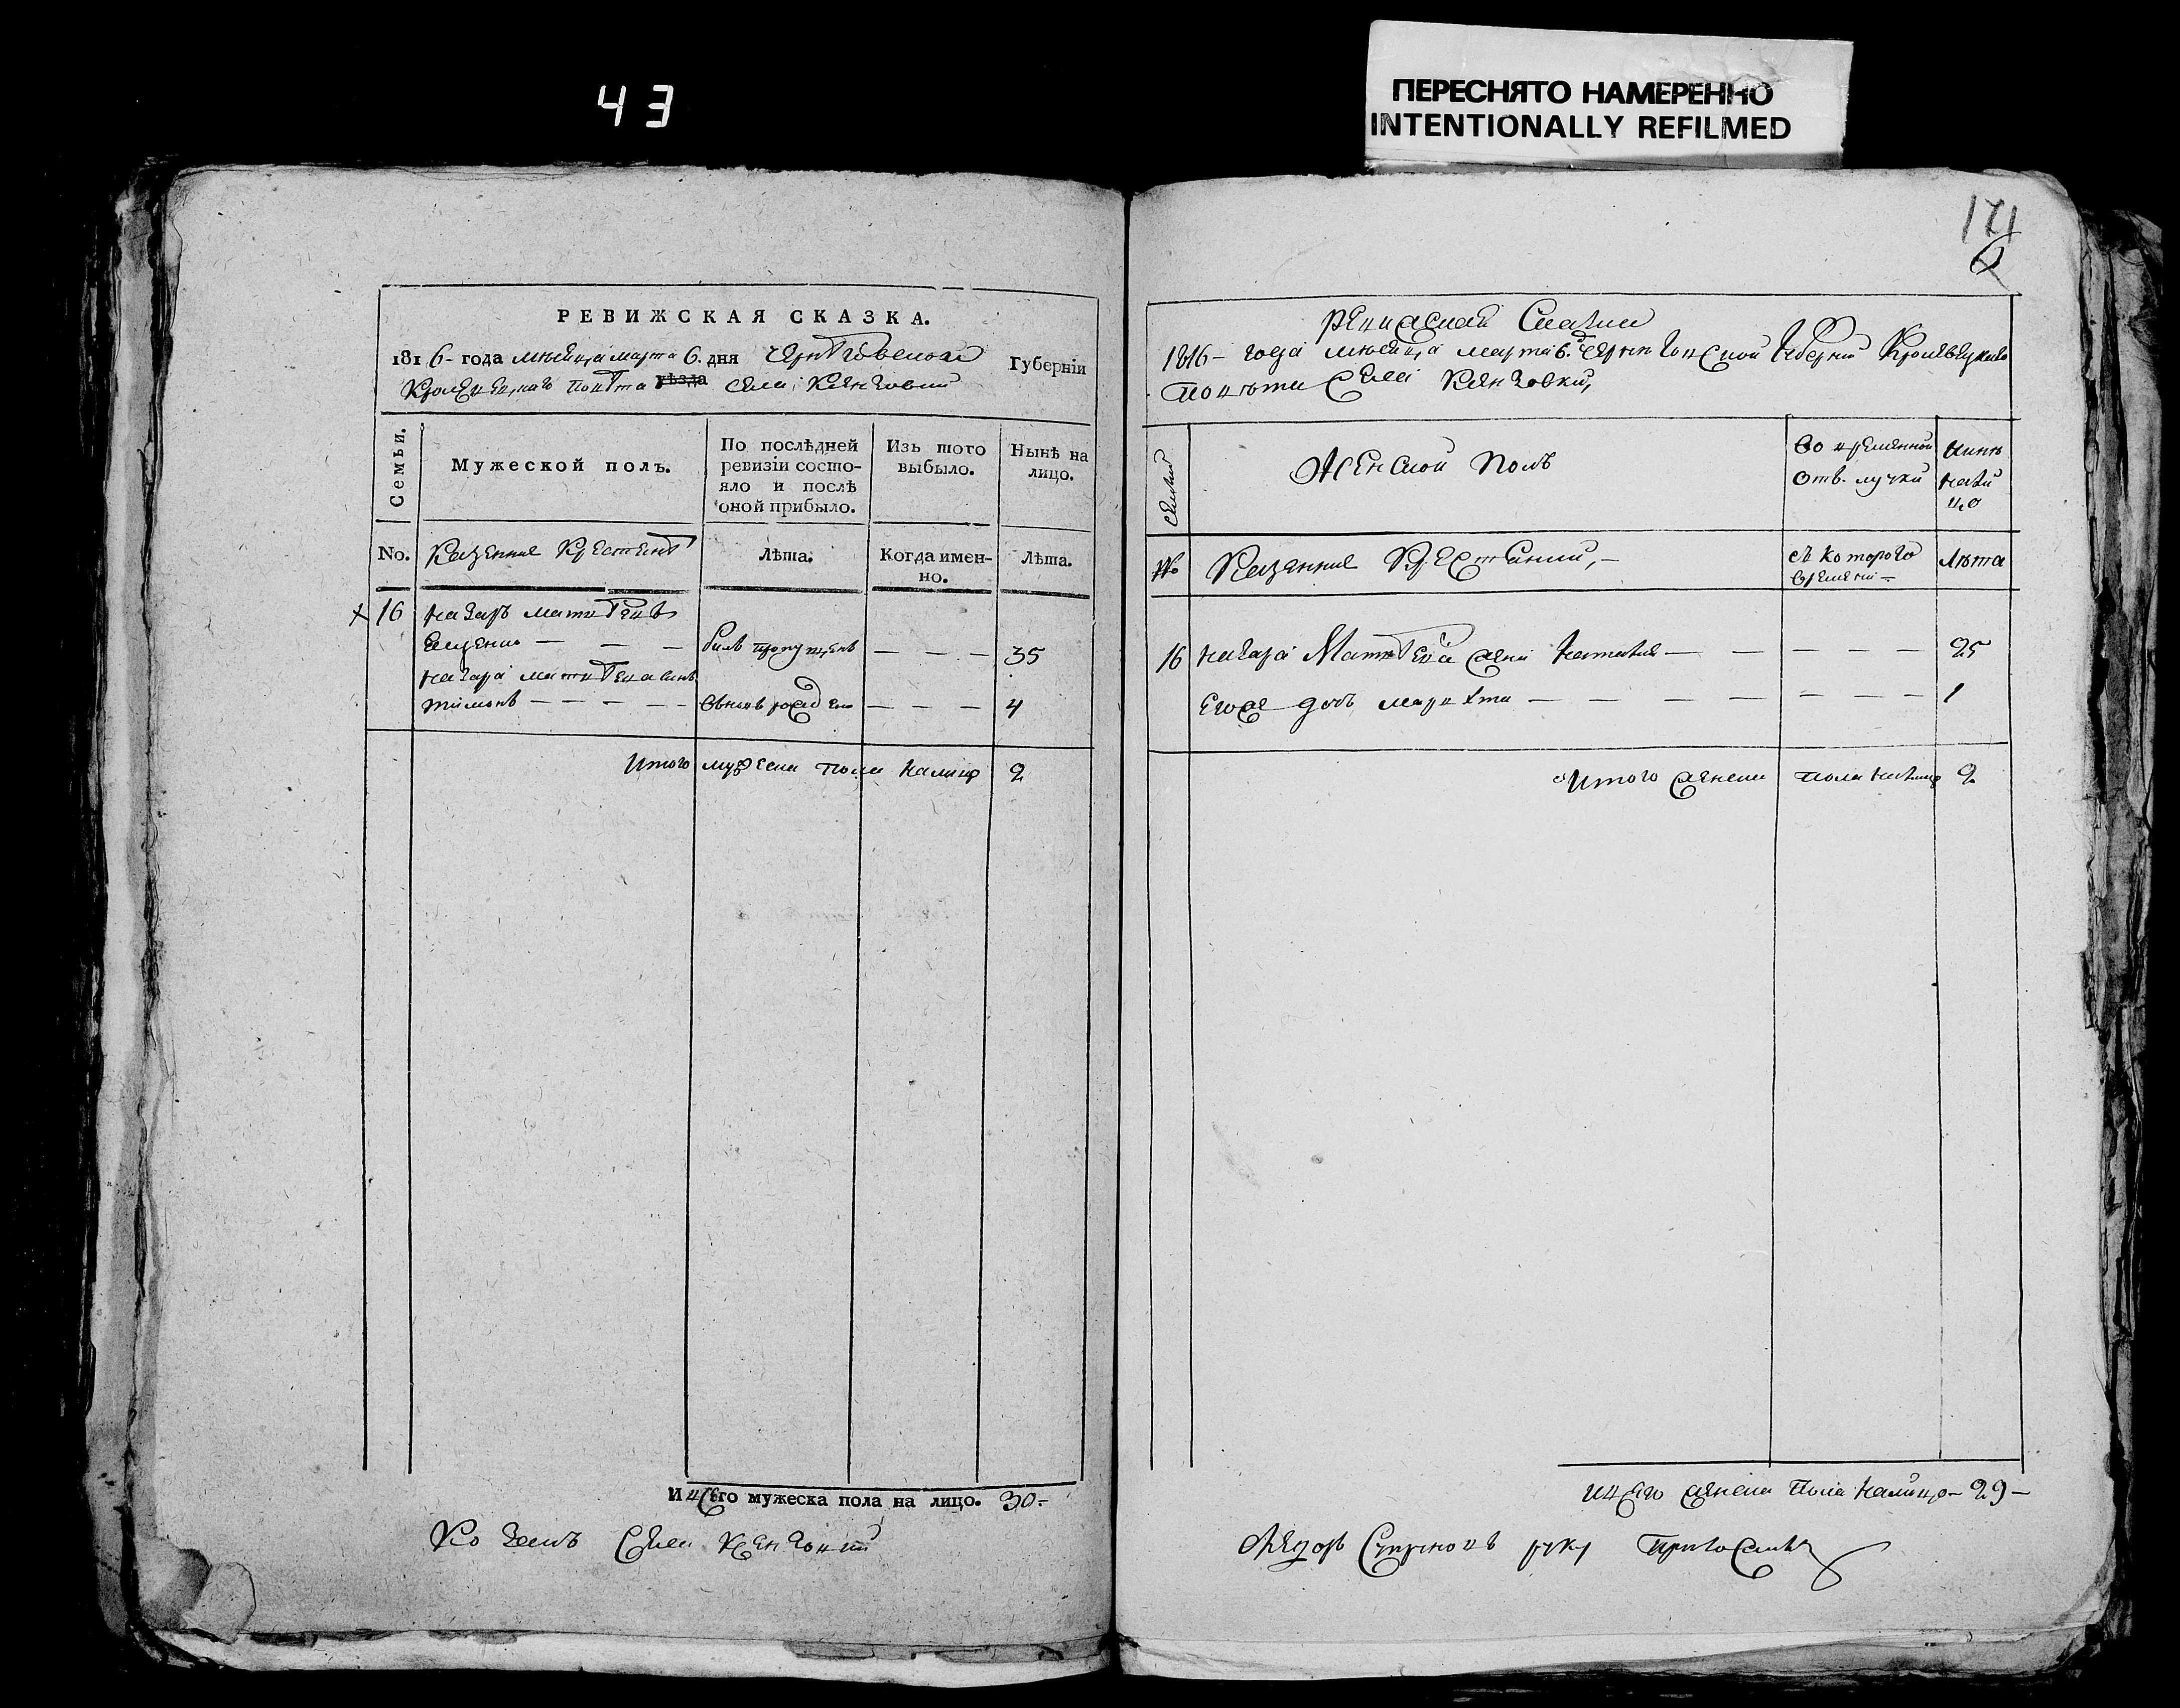 43
ПЕРЕСНЯТО НАМЕРЕННО
INTENTIONALLY REFILMED
171
6
РЕВИЖСКАЯ СКАЗКА.
1816- года мѣсяца марта 6. дня Черниговской Губерніи
Кролевецкаго повѣта уѣзда села
Семьи.
Мужеской полъ.
По послѣдней
ревизіи состо-
яло и послѣ
оной прибыло.
Изъ того
выбыло.
Нынѣ на
лицо.
No.
Казенние Крестяне
Лѣта.
Когда имен-
но.
Лѣта.
16 Назаръ Матвѣевъ
былъ пропущенъ — — — 35
Назара Матвѣева синъ
Тимонъ — — — — — вновь рожден — — — 4
Итого мужеска пола налицо 2
И всего мужеска пола на лицо. 30-
Козакъ села
Ревижская Сказка
1816- года мѣсяца марта 6. д Черниговской Губерніи Кролевецкаго
повѣта Села
Семьи
Женской Полъ
Во временной
отлучки
Нинѣ
нали
цо
No
Казенние Крестянки,-
съ которого
времени-
Лѣта
16 Назара Матвѣева жена Наталия — — — — — — 25
Егоже дочь — — — — — — — — 1
Итого женска пола налицо 2
И всего женска пола налицо- 29-
руку приложилъ